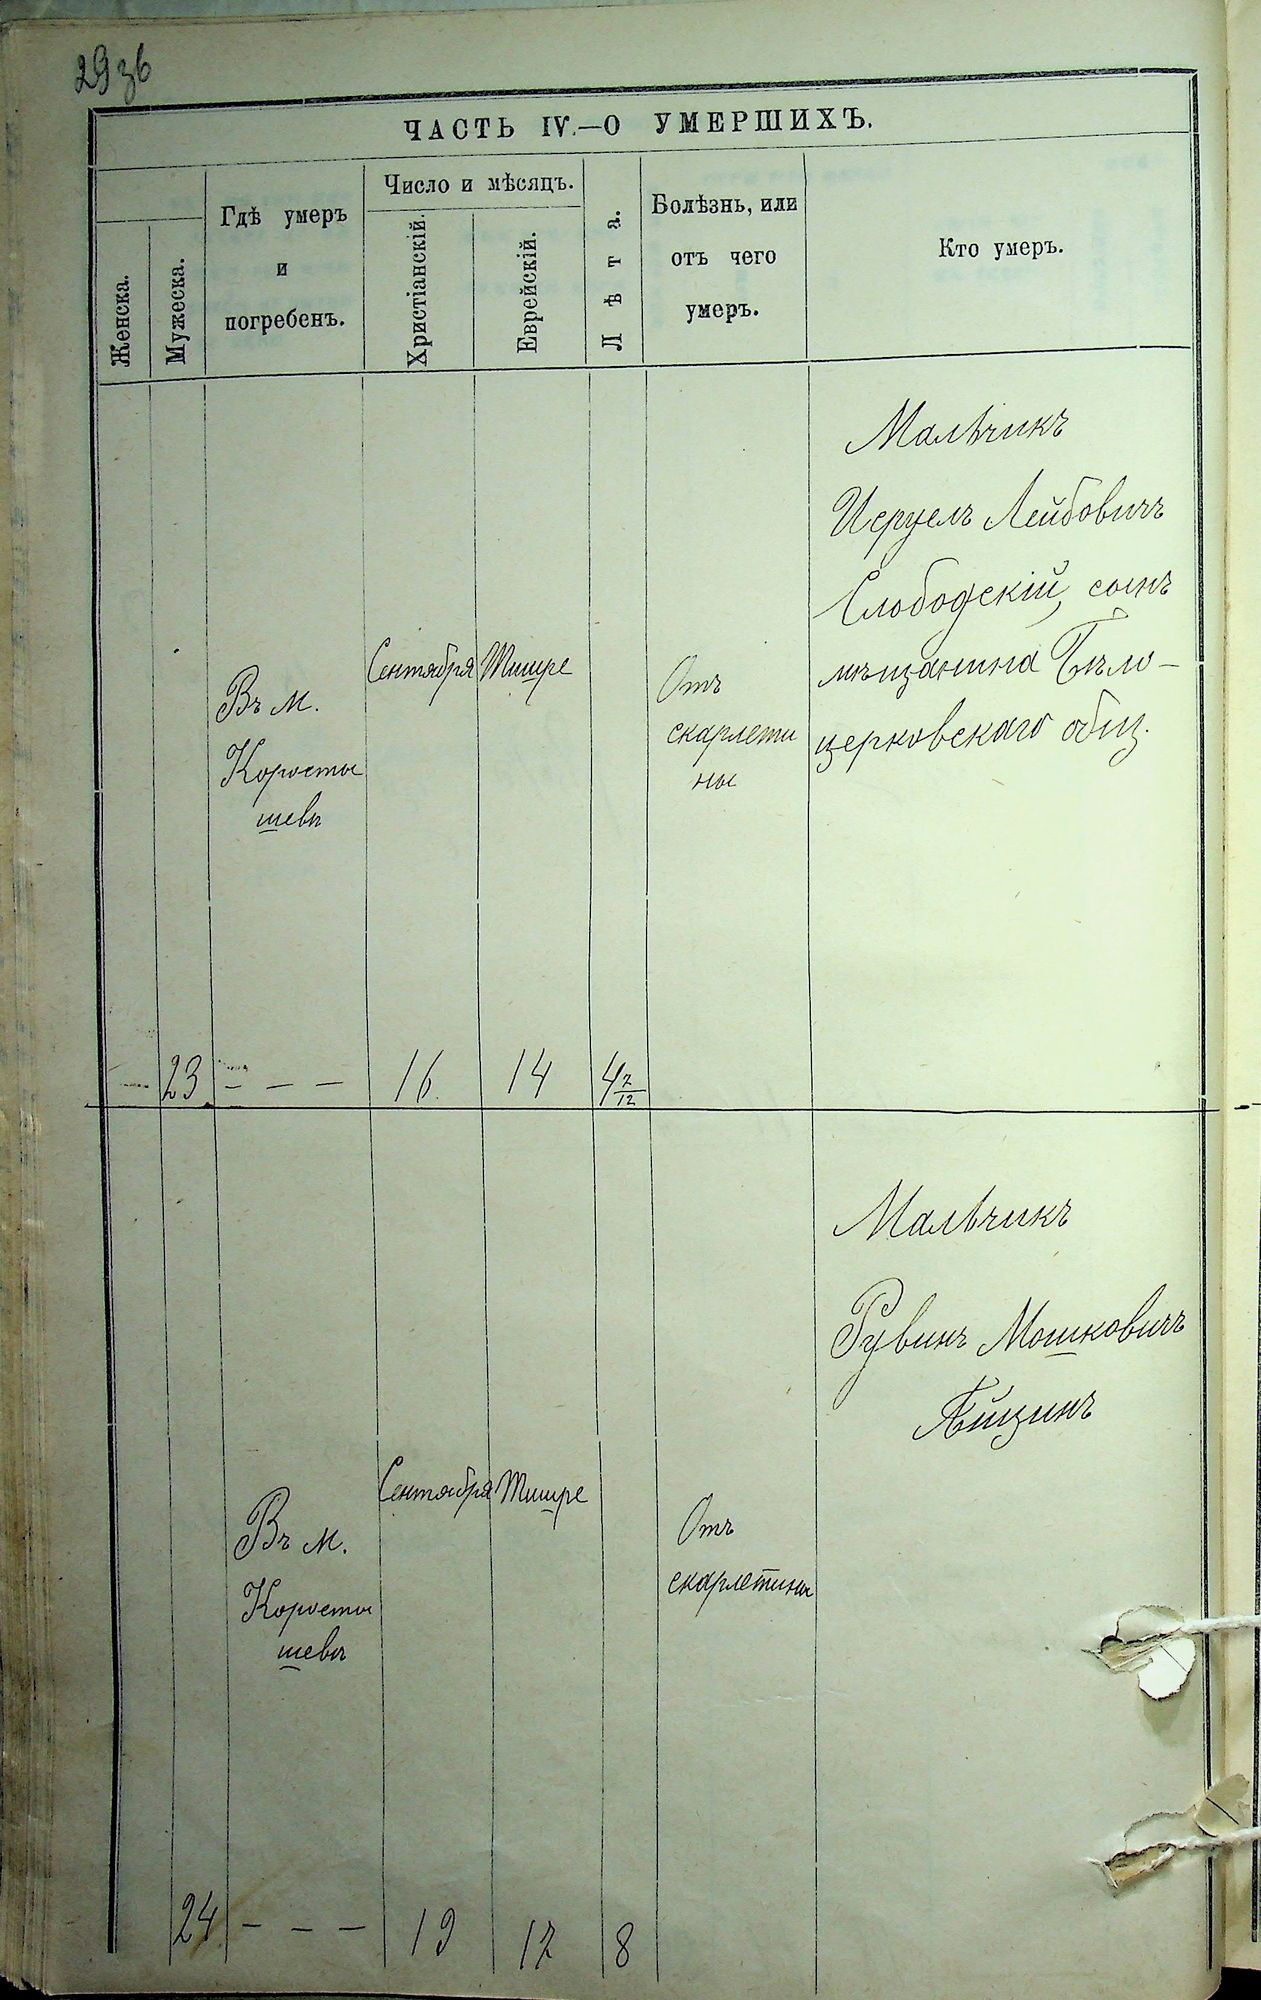 29зв
ЧАСТЬ IV.—О УМЕРШИХЪ.
Женска.
Мужеска.
Гдѣ умеръ
и
погребенъ.
Число и мѣсяцъ.
Христіанскій.
Еврейскій.
Лѣта.
Болѣзнь, или
отъ чего
умеръ.
Кто умеръ.
Мальчикъ
Исруелъ Лейбовичъ
Слободскій, сынъ
мѣщанина Бѣло-
церковскаго общ.
Въ м.
Коросты
шевѣ
Сентября
Тишре
Отъ
скарлати
ны
— 23 — — — 16 14 4 7/12
Мальчикъ
Рувинъ Мошковичъ
Въ м.
Коросты
шевѣ
Сентября
Тишре
Отъ
скарлетины
24 — — — 19 17 8